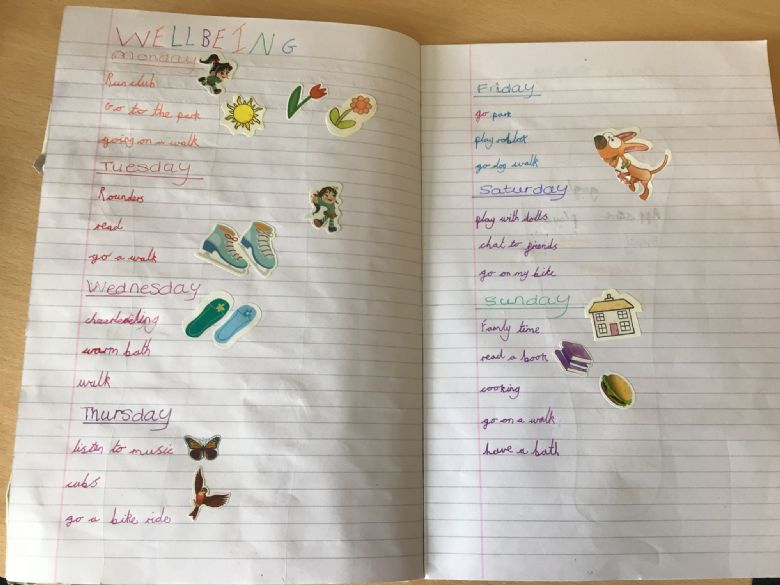 WELLBEING
Monday
Run club
Go to the park
going on a walk
Tuesday
Rounders
read
go a walk
Wednesday
cheerleading
warm bath
walk
Thursday
listen to music
cubs
go a bike ride
Friday
go park
play roblox
go dog walk
Saturday
play with dolls
chat to friends
go on my bike
Sunday
Famly time
read a book
cooking
go on a walk
have a bath